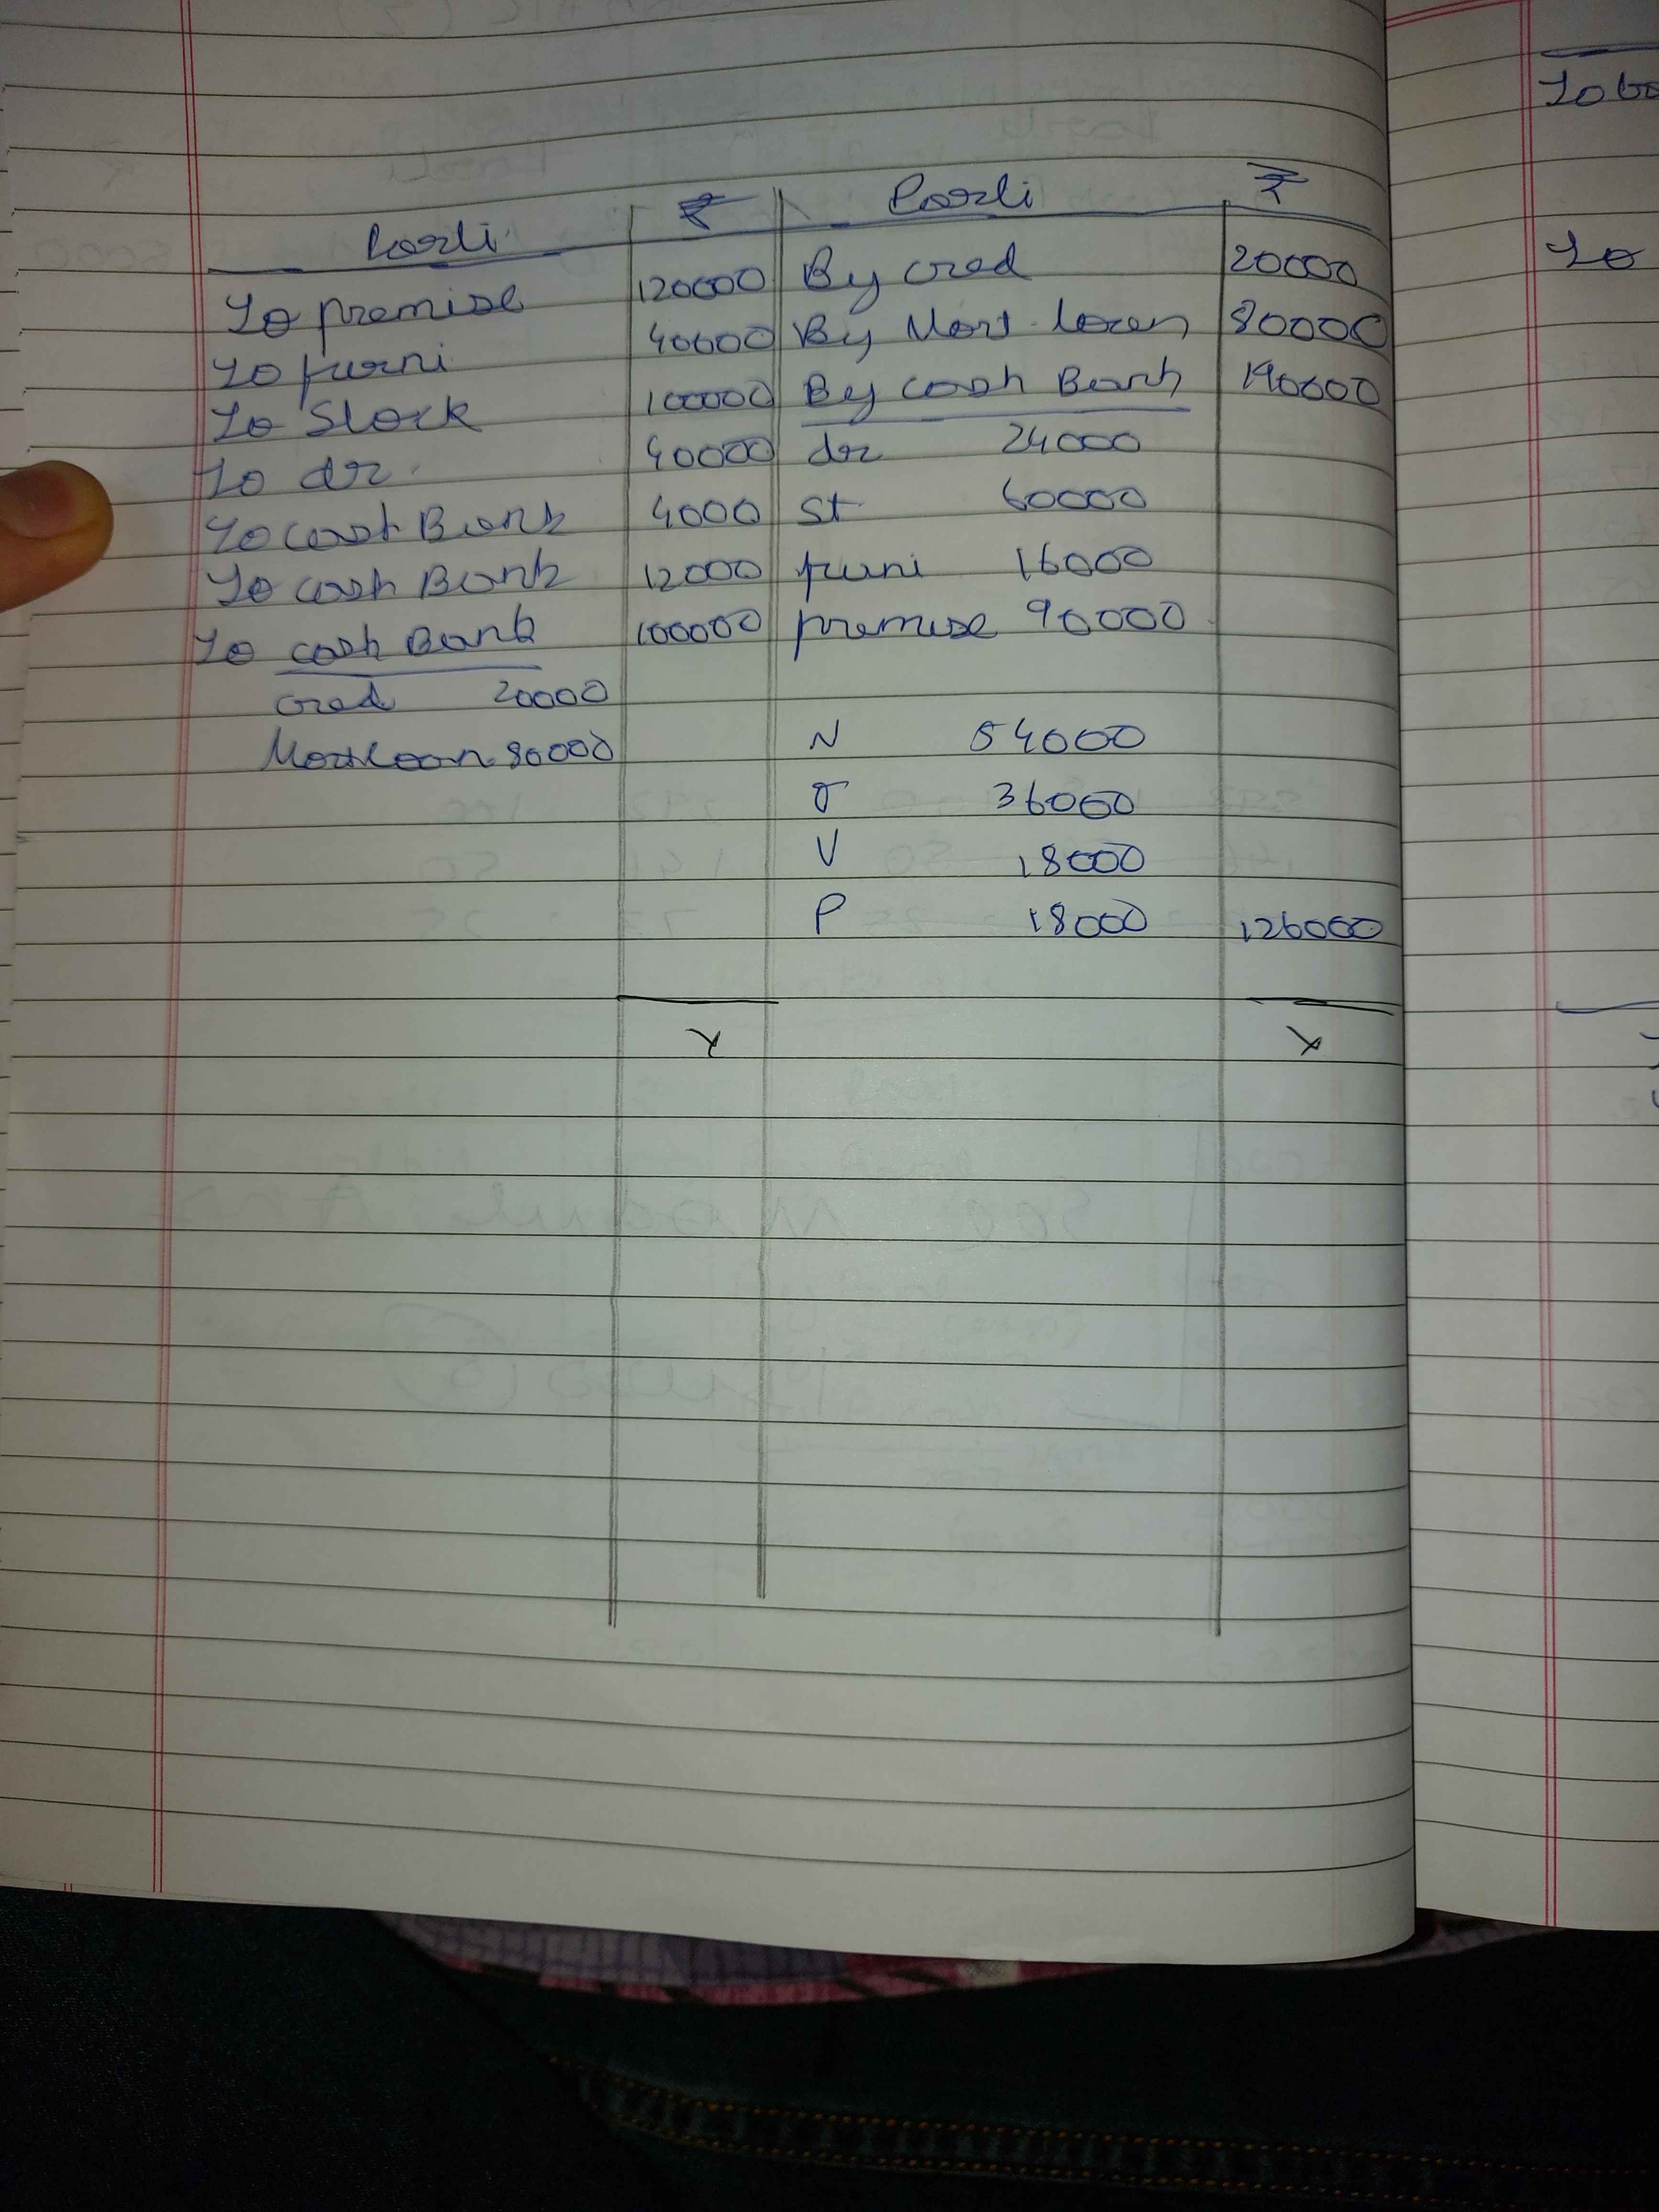 Parti. ₹ Parti ₹
To premise 120000 By cred 20000
To furni 40000 By Mort. loan 80000
To Stock 100000 By cash Bank 190000
To dr. 40000 dr 24000
To cash Bank 4000 st 60000
To cash Bank 12000 furni 16000
To cash Bank 100000 premise 90000
cred 20000
Mort loan 80000 N 54000
J 36000
V 18000
P 18000 126000
To